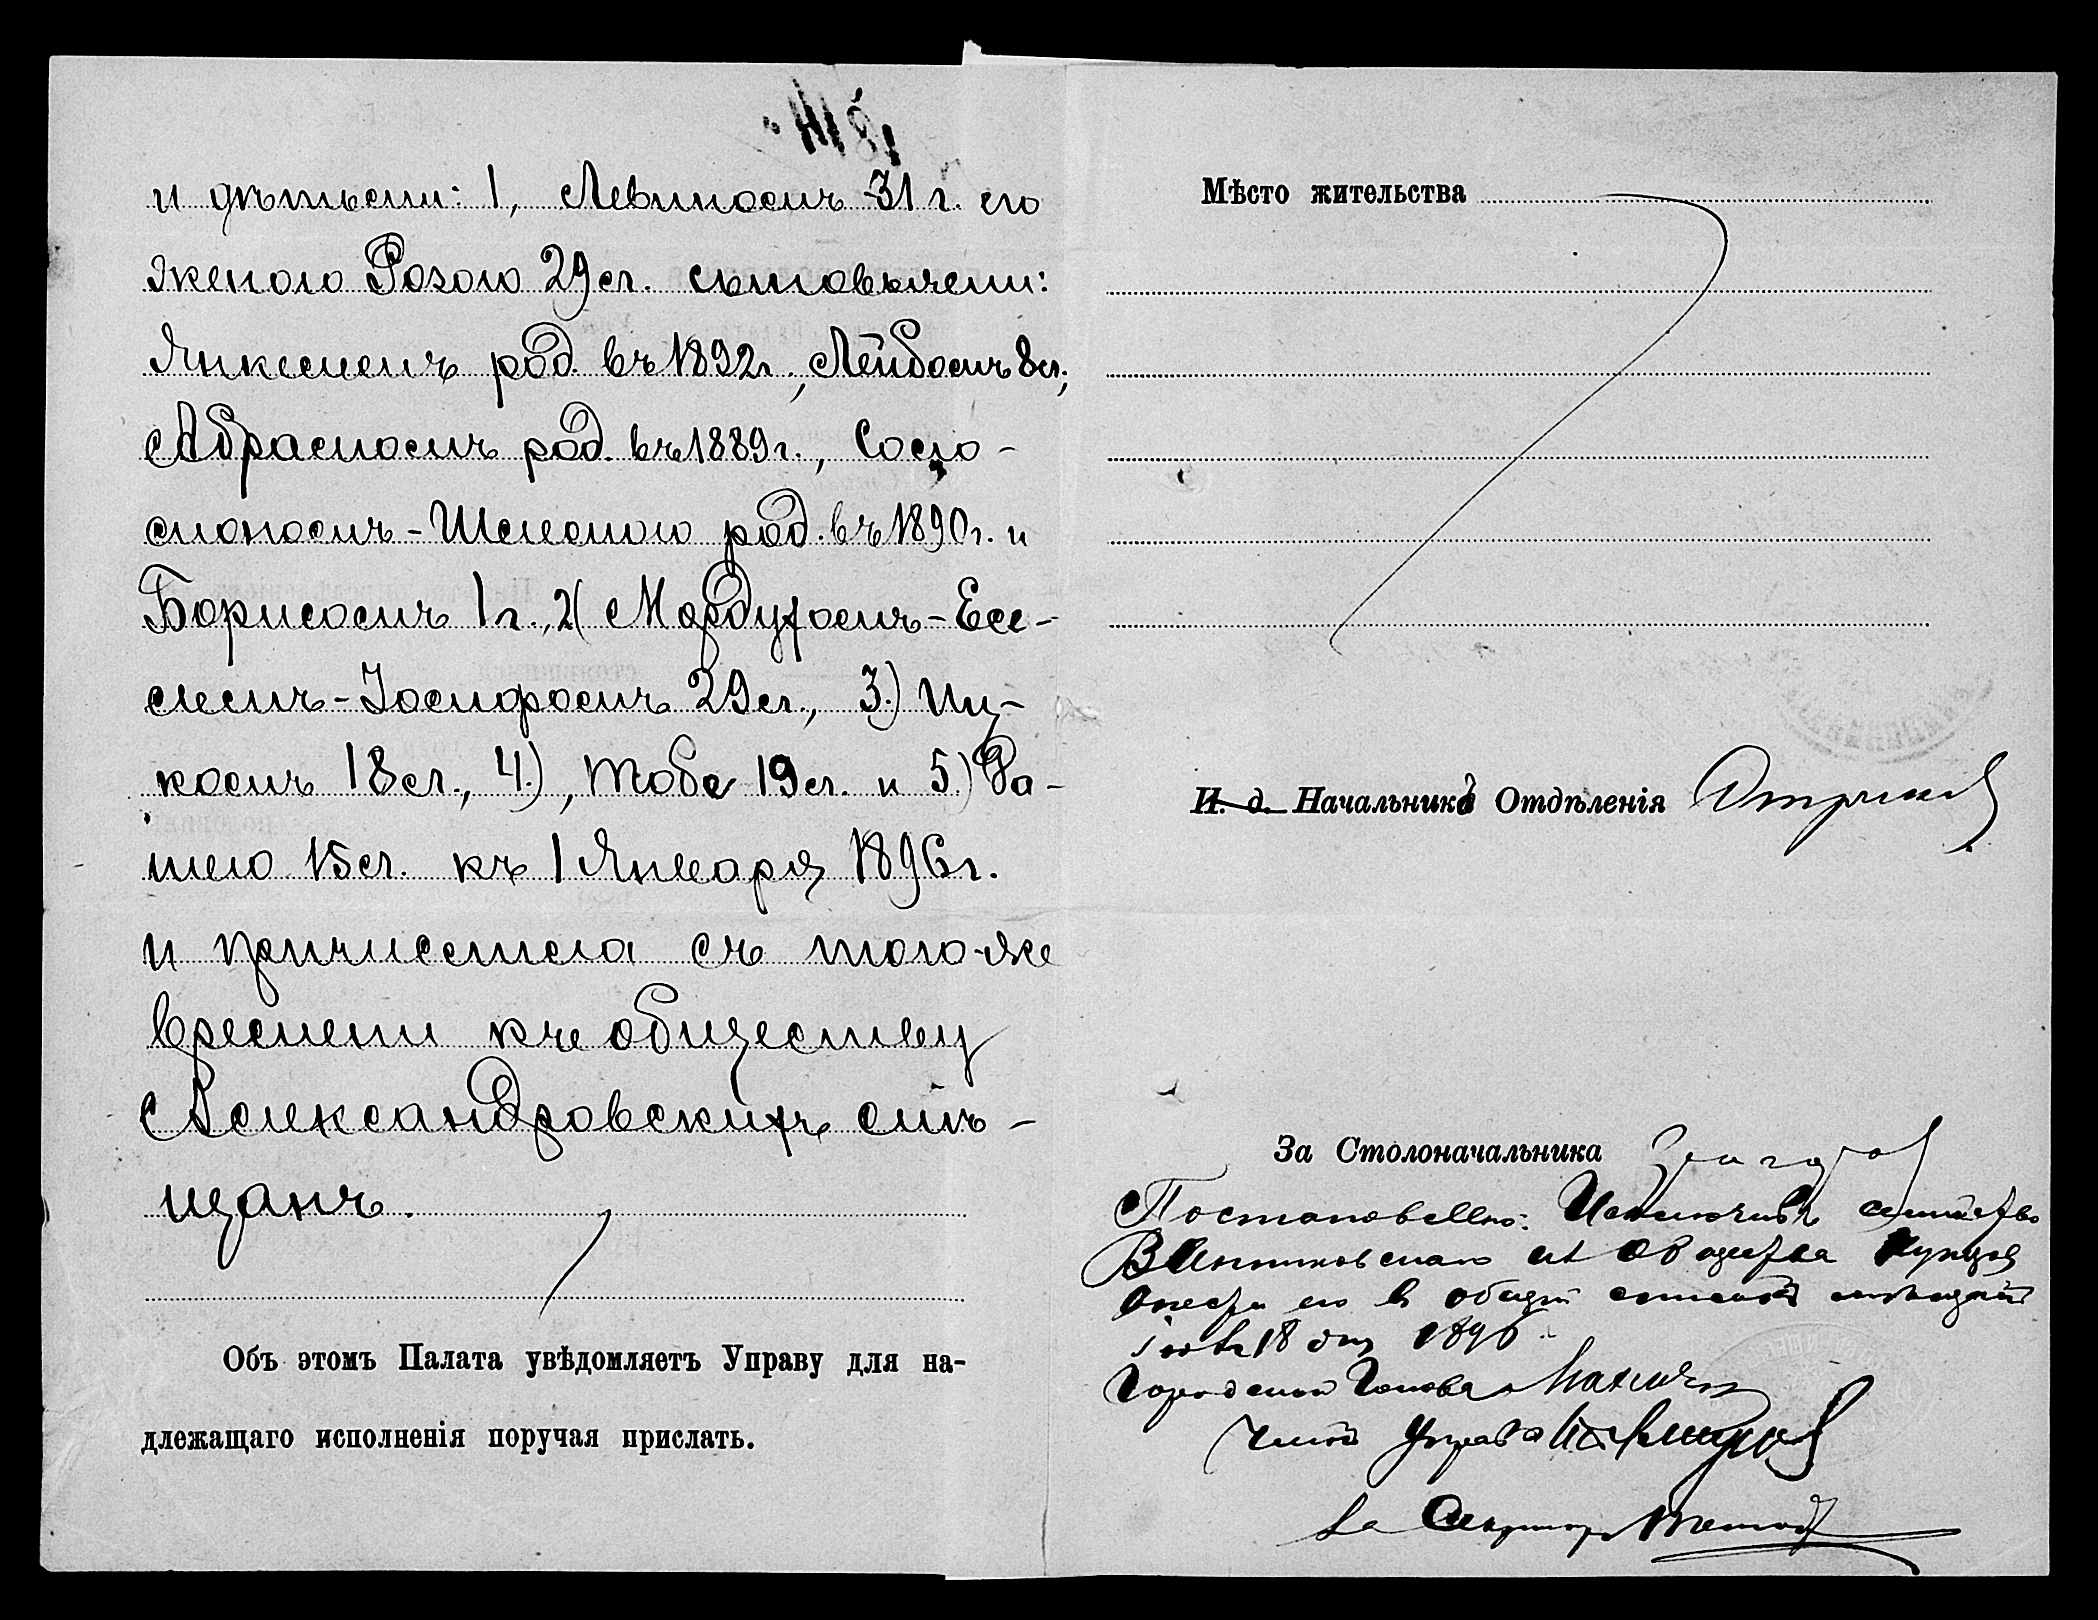 и дѣтьми: 1, Левиномъ 31 г. его
женою Розою 29 л. сыновьями:
Янкелемъ род. въ 1892 г., Лейбомъ 8 л.,
Абрамомъ род. въ 1889 г., Соло-
мономъ-Шлемою род. въ 1890 г. и
Борисомъ 1 г., 2) Мордухомъ-Есе-
лемъ-Іосифомъ 29 л., 3.) Иц-
комъ 18 л., 4.), Тобе 19 л. и 5) Ра-
шею 15 л. къ 1 Января 1896 г.
и причислена съ того-же
времени къ обществу
Александровскихъ мѣ-
щанъ.
Объ этомъ Палата увѣдомляетъ Управу для на-
длежащаго исполненія поручая прислать.
Мѣсто жительства
И. д. Начальника Отдѣленія
За Столоначальника
Постановлено: Исключивъ семейство
изъ общества купцовъ
внести его въ общій списокъ мѣщанъ
18 дня 1896
Городской Голова
Членъ Управы
За Секретаря